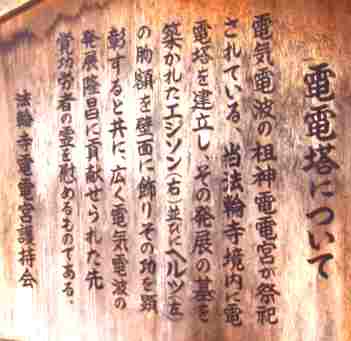 電電塔について
電気電波の祖神電電宮が祭祀
されている、当法輪寺境内に電
電塔を建立し、その発展の基を
築かれたエジソン(右)並びにヘルツ(左)
の胸額を壁面に飾りその功を顕
彰すると共に、広く電気電波の
発展隆昌に貢献せられた先
賢功労者の霊を慰めるものである。
法輪寺電電宮護持会